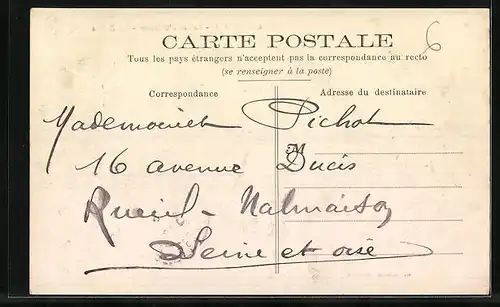 6
CARTE POSTALE
Tous les pays étrangers n'acceptent pas la correspondance au recto
(se renseigner à la poste)
Correspondance Adresse du destinataire
Mademoiselle Pichot
M
16 avenue Ducis
Rueil-Malmaison
Seine et oise